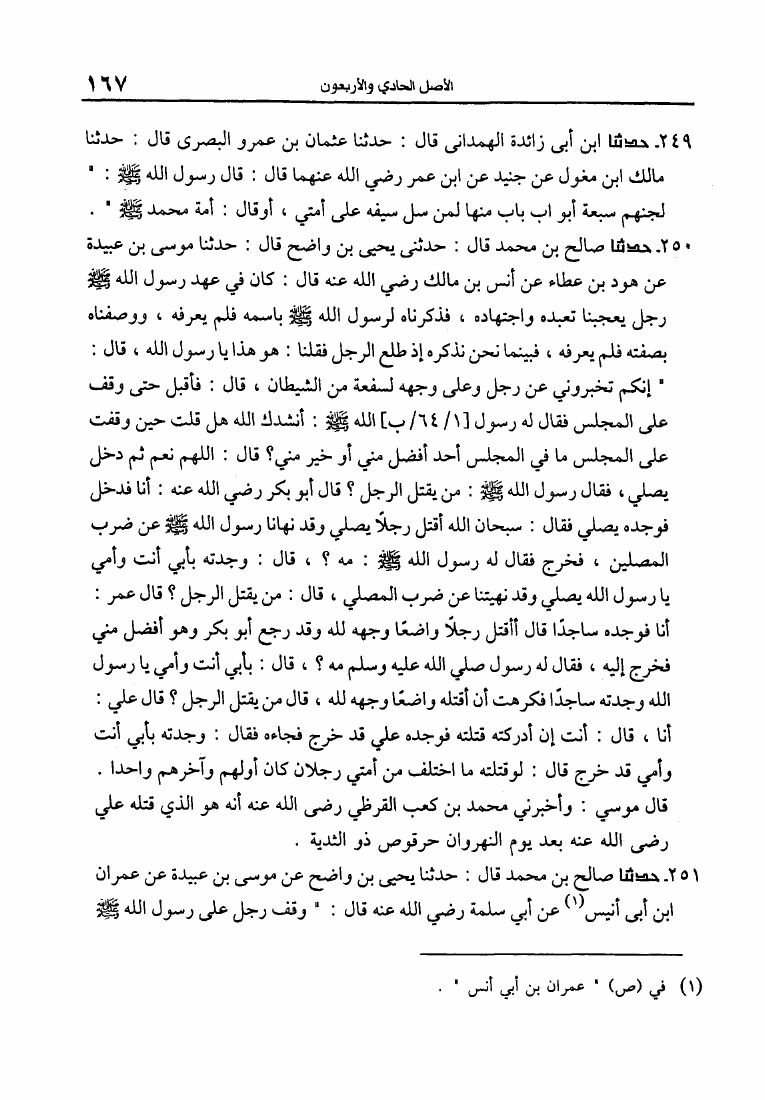 الأصل الحادي والأربعون ١٦٧
٢٤٩ـ حدثنا ابن أبى زائدة الهمدانى قال : حدثنا عثمان بن عمرو البصرى قال : حدثنا
مالك ابن مغول عن جنيد عن ابن عمر رضي الله عنهما قال : قال رسول الله ﷺ : "
لجنهم سبعة أبو اب باب منها لمن سل سيفه على أمتي ، أوقال : أمة محمد ﷺ " .
٢٥٠ـ حدثنا صالح بن محمد قال : حدثنى يحيى بن واضح قال : حدثنا موسى بن عبيدة
عن هود بن عطاء عن أنس بن مالك رضي الله عنه قال : كان في عهد رسول الله ﷺ
رجل يعجبنا تعبده واجتهاده ، فذكرناه لرسول الله ﷺ باسمه فلم يعرفه ، ووصفناه
بصفته فلم يعرفه ، فبينما نحن نذكره إذ طلع الرجل فقلنا : هو هذا يا رسول الله ، قال :
" إنكم تخبروني عن رجل وعلى وجهه لسفعة من الشيطان ، قال : فأقبل حتى وقف
على المجلس فقال له رسول [١/ ٦٤/ ب] الله ﷺ : أنشدك الله هل قلت حين وقفت
على المجلس ما في المجلس أحد أفضل مني أو خير مني؟ قال : اللهم نعم ثم دخل
يصلي، فقال رسول الله ﷺ : من يقتل الرجل ؟ قال أبو بكر رضي الله عنه : أنا فدخل
فوجده يصلي فقال : سبحان الله أقتل رجلاً يصلي وقد نهانا رسول الله ﷺ عن ضرب
المصلين ، فخرج فقال له رسول الله ﷺ : مه ؟ ، قال : وجدته بأبي أنت وأمي
يا رسول الله يصلي وقد نهيتنا عن ضرب المصلي ، قال : من يقتل الرجل ؟ قال عمر :
أنا فوجده ساجدًا قال أأقتل رجلًا واضعًا وجهه لله وقد رجع أبو بكر وهو أفضل مني
فخرج إليه ، فقال له رسول صلي الله عليه وسلم مه ؟ ، قال : بأبي أنت وأمي يا رسول
الله وجدته ساجدًا فكرهت أن أقتله واضعًا وجهه لله ، قال من يقتل الرجل ؟ قال علي :
أنا ، قال : أنت إن أدركته قتلته فوجده علي قد خرج فجاءه فقال : وجدته بأبي أنت
وأمي قد خرج قال : لوقتلته ما اختلف من أمتي رجلان كان أولهم وآخرهم واحدا .
قال موسي : وأخبرني محمد بن كعب القرظي رضى الله عنه أنه هو الذي قتله علي
رضى الله عنه بعد يوم النهروان حرقوص ذو الثدية .
٢٥١ـ حدثنا صالح بن محمد قال : حدثنا يحيى بن واضح عن موسى بن عبيدة عن عمران
ابن أبى أنيس(١) عن أبي سلمة رضي الله عنه قال : " وقف رجل على رسول الله ﷺ
(١) في (ص) " عمران بن أبي أنس " .